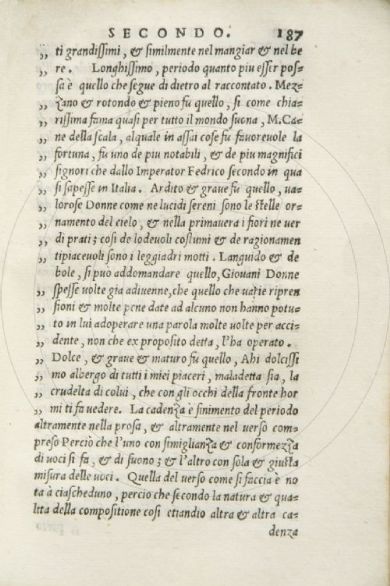 SECONDO. 187
„ ti grandissimi, & similmente nel mangiar & nel be
„ re. Longhissimo, periodo quanto piu esser pos=
„ sa è quello che segue di dietro al raccontato. Mez=
„ zano & rotondo & pieno fu quello, si come chia=
„ rissima fama quasi per tutto il mondo suona, M. Ca=
„ ne della scala, alquale in assai cose fu favorevole la
„ fortuna, fu uno de piu notabili, & de piu magnifici
„ signori che dallo Imperator Fedrico secondo in qua
„ si sapesse in Italia. Ardito & grave fu quello, va=
„ lorose Donne come ne lucidi sereni sono le stelle or=
„ namento del cielo, & nella primavera i fiori ne ver
„ di prati; cosi de lodevoli costumi & de ragionamen
„ ti piacevoli sono i leggiadri motti. Languido & de
„ bole, si può addomandare quello, Giovani Donne
„ spesse volte gia adivenne, che quello che varie ripren
„ sioni & molte pene date ad alcuno non hanno potu=
„ to in lui adoperare una parola molte volte per acci=
„ dente, non che ex proposito detta, l'ha operato.
„ Dolce, & grave & maturo fu quello, Ahi dolcissi
„ mo albergo di tutti i miei piaceri, maladetta sia, la
„ crudelta di colui, che con gli occhi della fronte hor
„ mi ti fa vedere. La cadenza è finimento del periodo
altramente nella prosa, & altramente nel verso com=
preso Perciò che l'uno con simiglianza & conformezza
di voci si fa, & di suono; & l'altro con sola & giusta
misura delle voci. Quella del verso come si faccia è no
ta à ciascheduno, percio che secondo la natura & qua=
lita della compositione cosi etiandio altra & altra ca=
denza